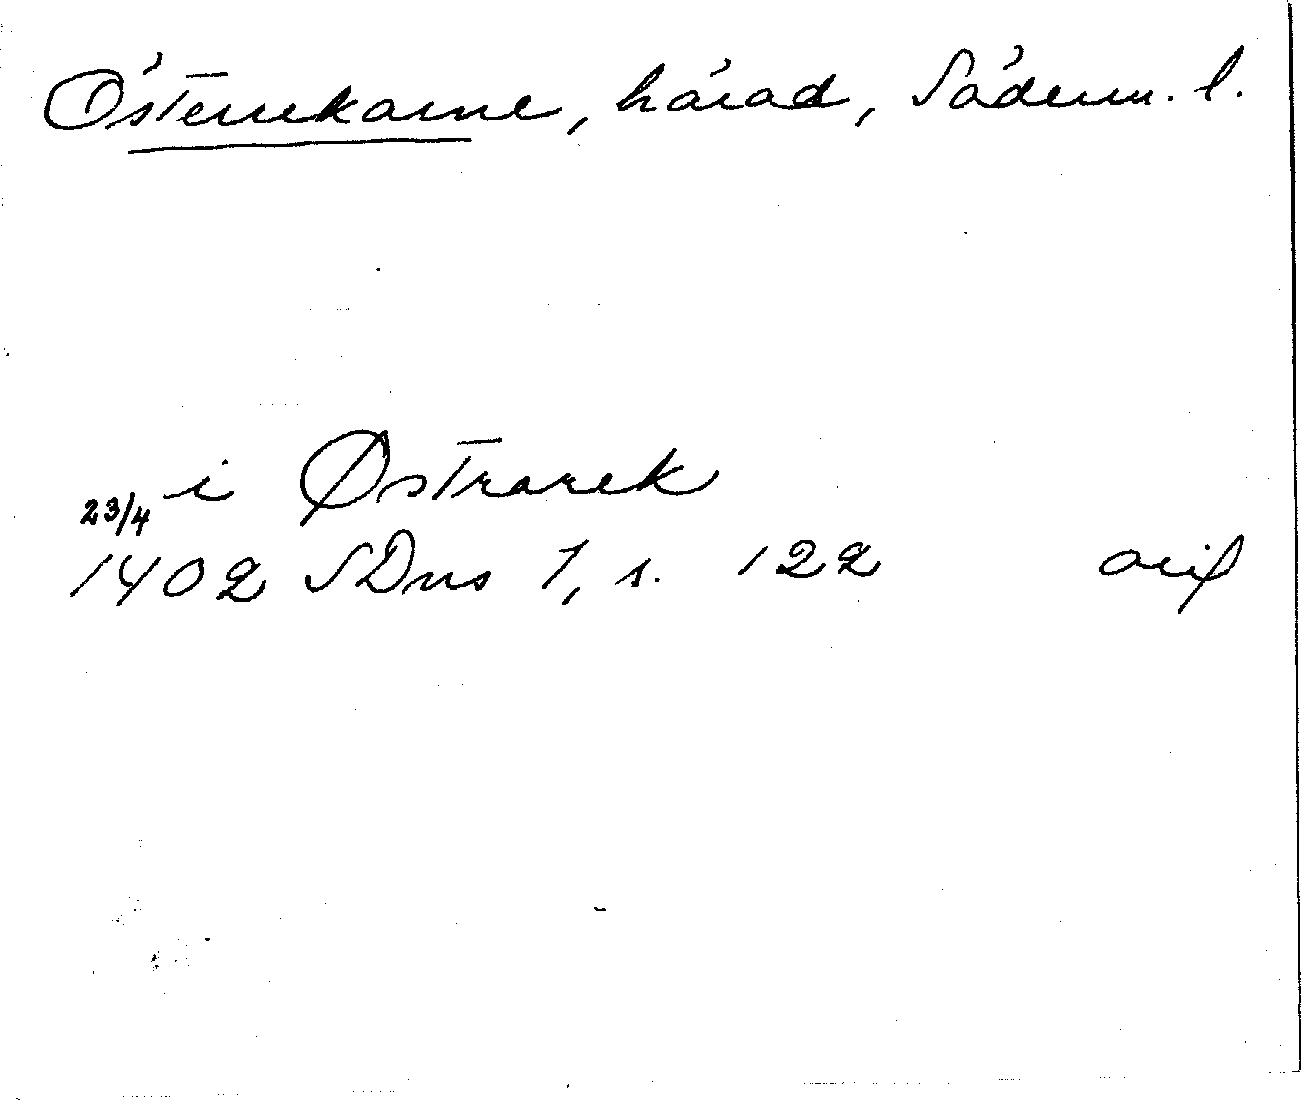 Österrekarne, härad, Söderm. l.
i Østrarek
23/4
1402 SDns 1, s. 122 orig